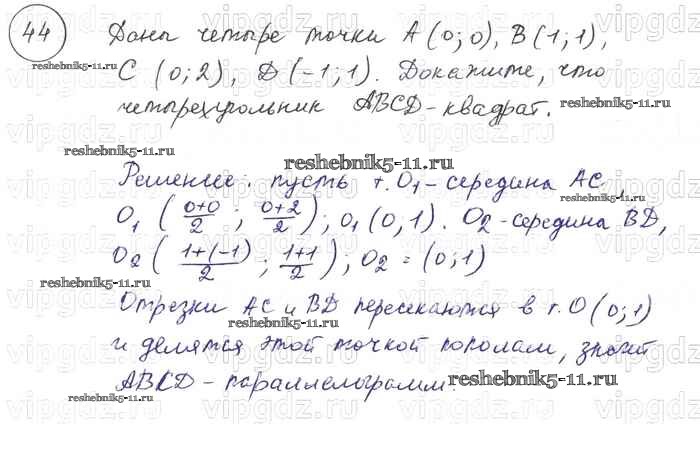 44 Даны четыре точки A(0;0), B(1;1),
C (0;2), D(-1;1). Докажите, что
четырехугольник ABCD-квадрат.
Решение: пусть т.O₁-середина AC,
O₁ ( (0+0)/2 ; (0+2)/2 ); O₁ (0,1). O₂-середина BD,
O₂ ( (1+(-1))/2 ; (1+1)/2 ); O₂ = (0;1)
Отрезки AC и BD пересекаются в т.O(0;1)
и делятся этой точкой пополам, значит
ABCD-параллелограмм.
reshebnik5-11.ru
reshebnik5-11.ru
reshebnik5-11.ru
reshebnik5-11.ru
reshebnik5-11.ru
reshebnik5-11.ru
reshebnik5-11.ru
reshebnik5-11.ru
reshebnik5-11.ru
reshebnik5-11.ru